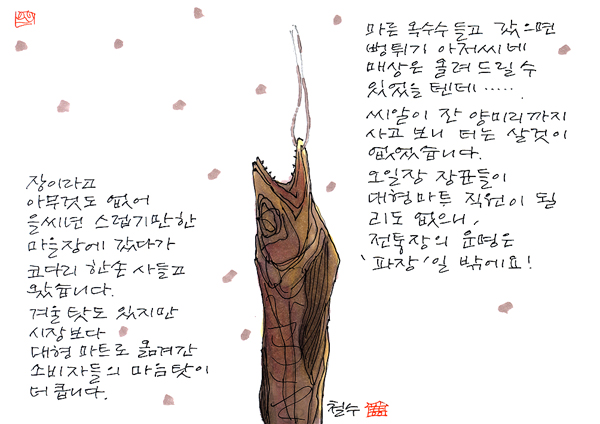 장이라고
아무것도 없어
을씨년 스럽기만한
마을장에 갔다가
코다리 한손 사들고
왔습니다.
겨울 탓도 있지만
시장보다
대형 마트로 옮겨간
소비자들의 마음탓이
더 큽니다.
마른 옥수수 들고 갔으면
뻥튀기 아저씨네
매상은 올려 드릴 수
있었을 텐데·····
씨알이 잔 양미리까지
사고 보니 더는 살것이
없었습니다.
오일장 장꾼들이
대형마트 직원이 될
리도 없으니,
전통장의 운명은
'파장'일 밖에요!
철수